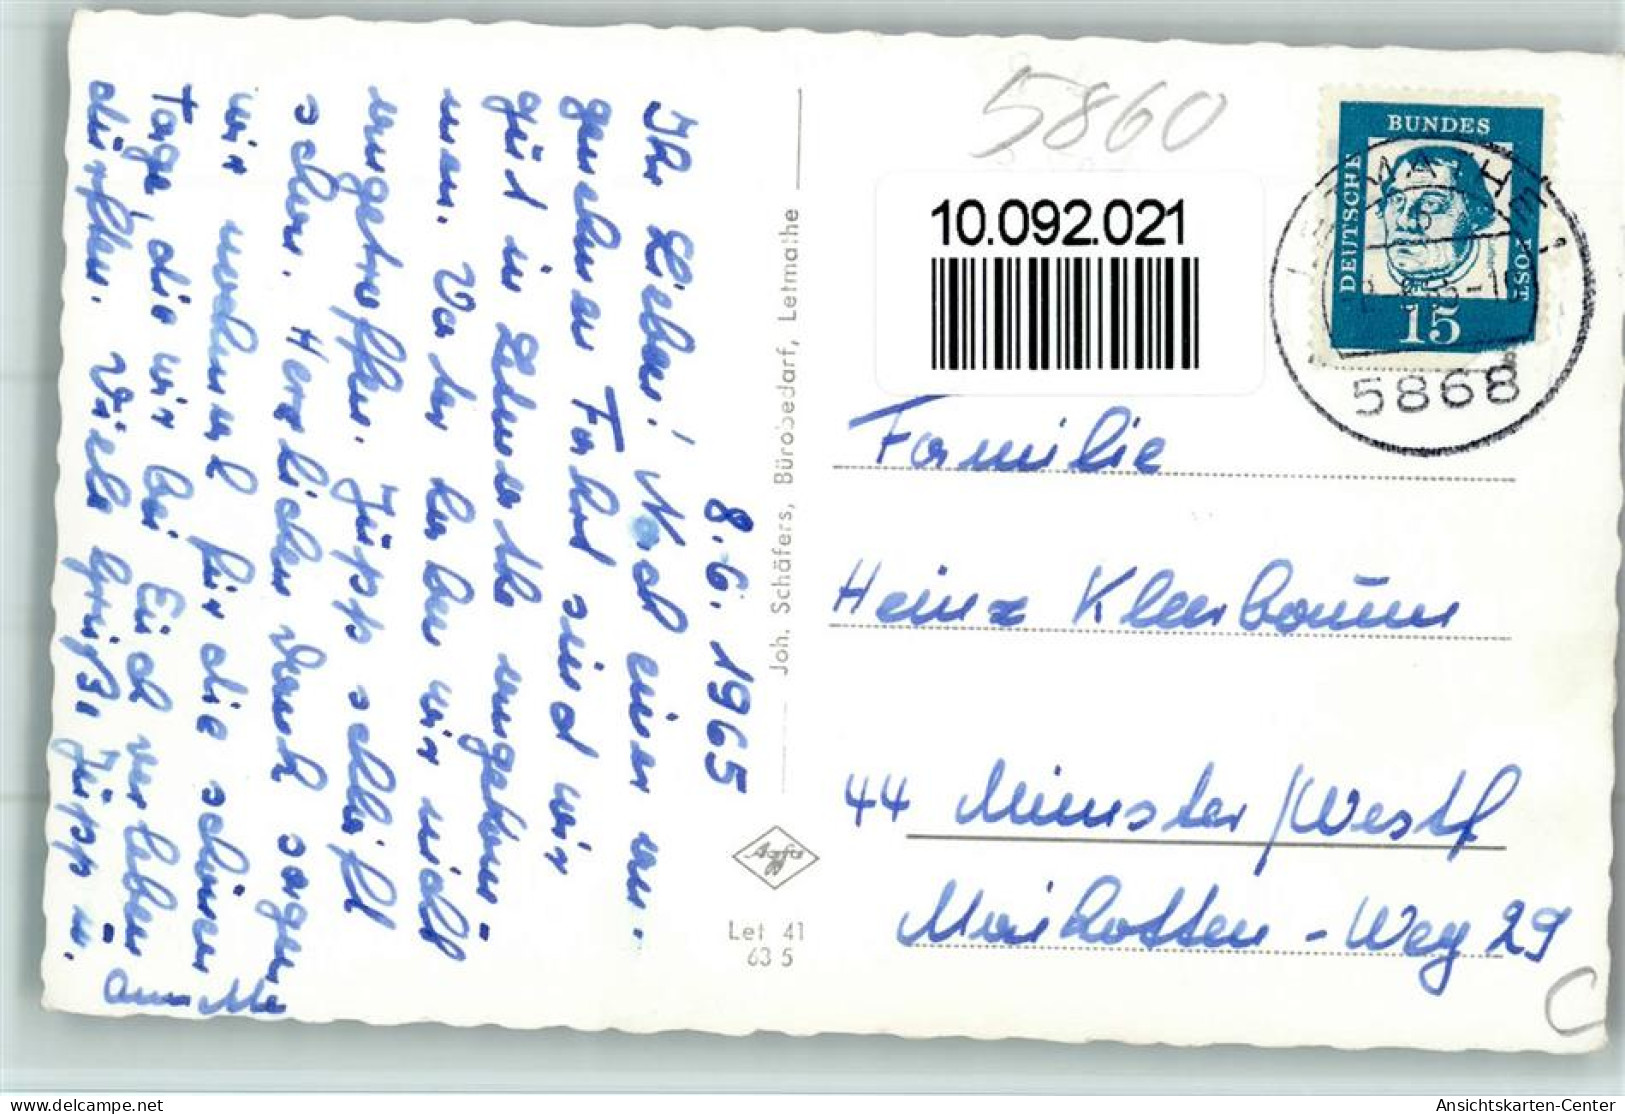 8.6.1965
Ihr Lieben! Nach einer an-
genehmen Fahrt sind wir
gut in Letmathe angekom-
men. Vater haben wir nicht
angetroffen. Jupp schläft
schon. Herzlichen Dank sagen
wir nochmal für die schönen
Tage, die wir bei Euch verleben
durften. Viele Grüße Jupp u.
Annette
Joh. Schäfers, Bürobedarf, Letmathe
Agfa
Let 41
63 5
5860
10.092.021
DEUTSCHE
BUNDES
POST
15
LETMATHE 1
5868
Familie
Heinz Kleerbaum
44 Münster/Westf
Maikotten-Weg 29
C
delcampe.net
Ansichtskarten-Center